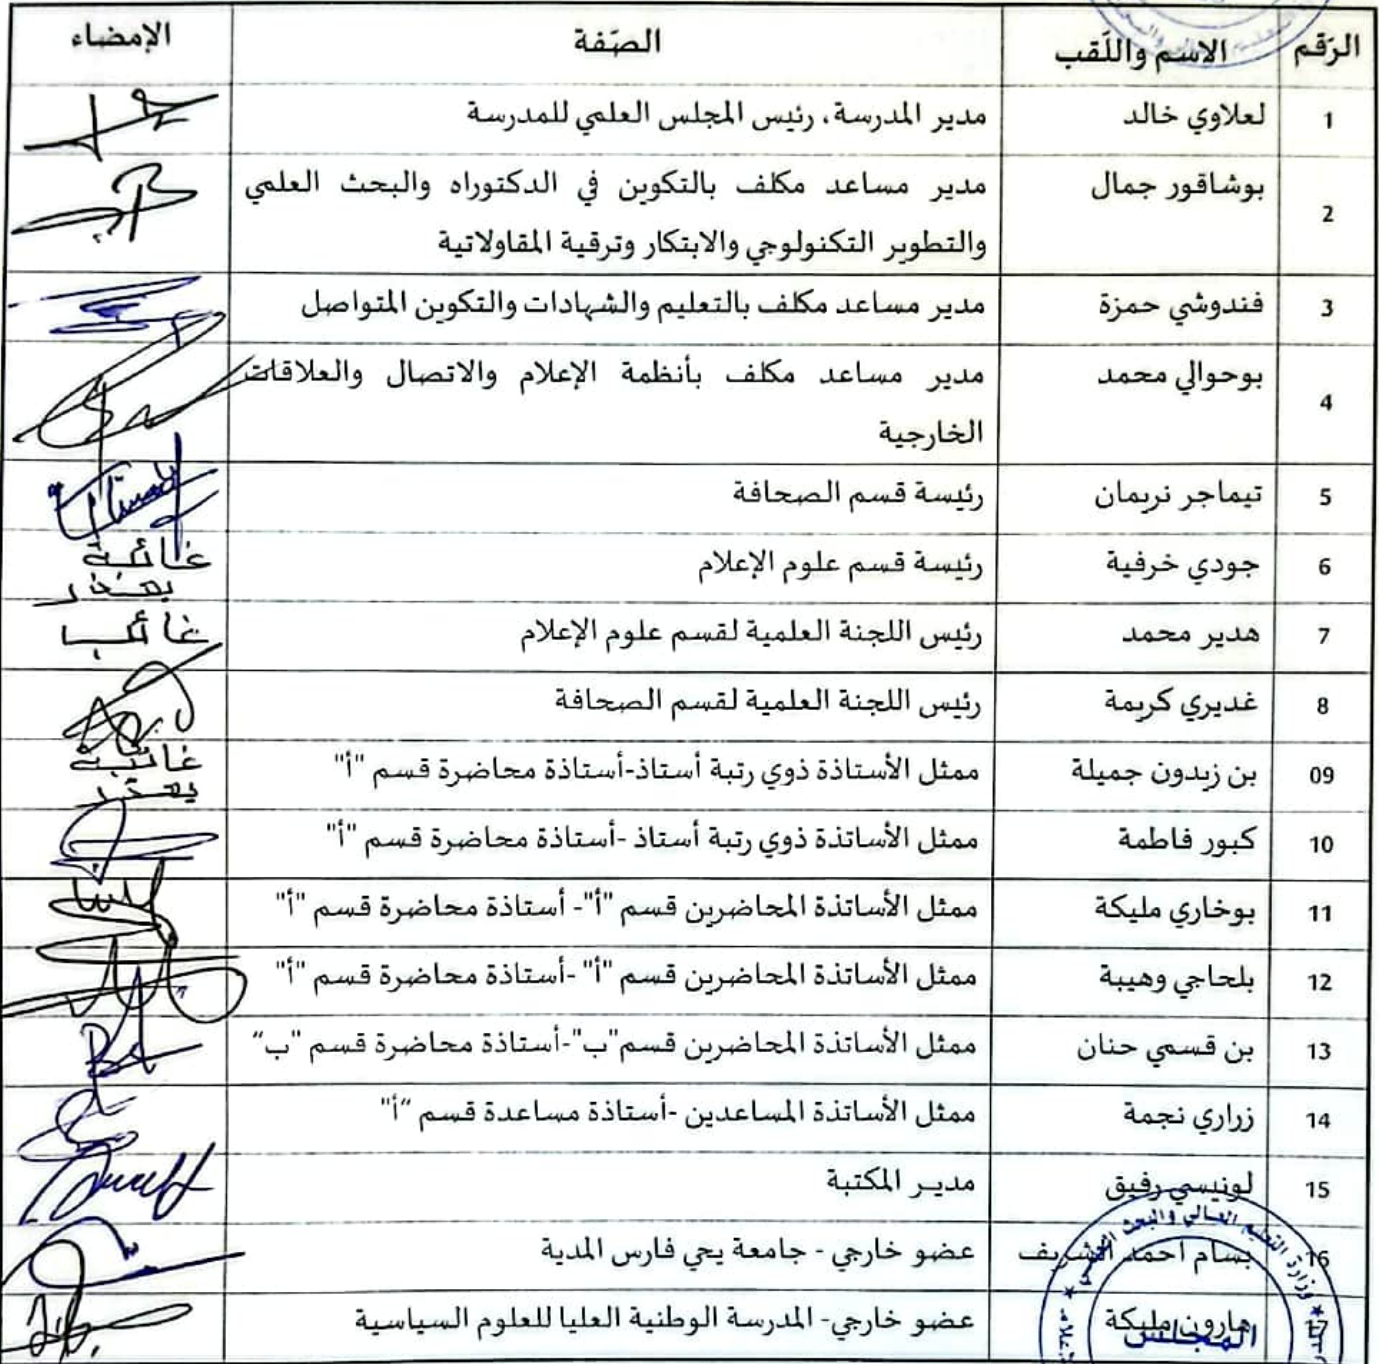 الرّقم الاسم واللّقب الصّفة الإمضاء
1 لعلاوي خالد مدير المدرسة، رئيس المجلس العلمي للمدرسة
2 بوشاقور جمال مدير مساعد مكلف بالتكوين في الدكتوراه والبحث العلمي
والتطوير التكنولوجي والابتكار وترقية المقاولاتية
3 فندوشي حمزة مدير مساعد مكلف بالتعليم والشهادات والتكوين المتواصل
4 بوحوالي محمد مدير مساعد مكلف بأنظمة الإعلام والاتصال والعلاقات
الخارجية
5 تيماجر نريمان رئيسة قسم الصحافة
6 جودي خرفية رئيسة قسم علوم الإعلام غائبة
بعذر
7 هدير محمد رئيس اللجنة العلمية لقسم علوم الإعلام غائب
8 غديري كريمة رئيس اللجنة العلمية لقسم الصحافة
09 بن زيدون جميلة ممثل الأستاذة ذوي رتبة أستاذ-أستاذة محاضرة قسم "أ" غائبة
بعذر
10 كبور فاطمة ممثل الأساتذة ذوي رتبة أستاذ -أستاذة محاضرة قسم "أ"
11 بوخاري مليكة ممثل الأساتذة المحاضرين قسم "أ"- أستاذة محاضرة قسم "أ"
12 بلحاجي وهيبة ممثل الأساتذة المحاضرين قسم "أ" -أستاذة محاضرة قسم "أ"
13 بن قسمي حنان ممثل الأساتذة المحاضرين قسم"ب"-أستاذة محاضرة قسم "ب"
14 زراري نجمة ممثل الأساتذة المساعدين -أستاذة مساعدة قسم "أ"
15 لونيسي رفيق مديـر المكتبة
16 بسام احمد الشريف عضو خارجي - جامعة يحي فارس المدية
17 هارون مليكة عضو خارجي- المدرسة الوطنية العليا للعلوم السياسية
وزارة التعليم العالي والبحث العلمي
المجلس